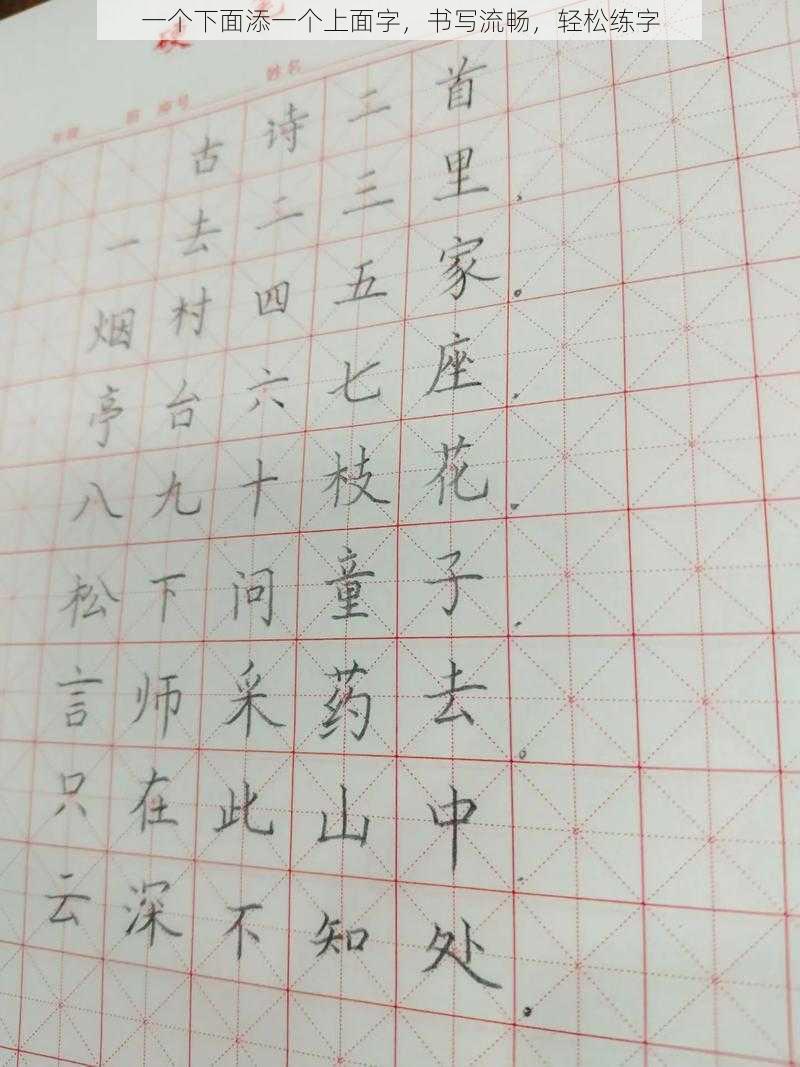 一个下面添一个上面字，书写流畅，轻松练字
硬笔
年级 班 编号 姓名
古诗二首
一去二三里，
烟村四五家。
亭台六七座，
八九十枝花。
松下问童子，
言师采药去。
只在此山中，
云深不知处。